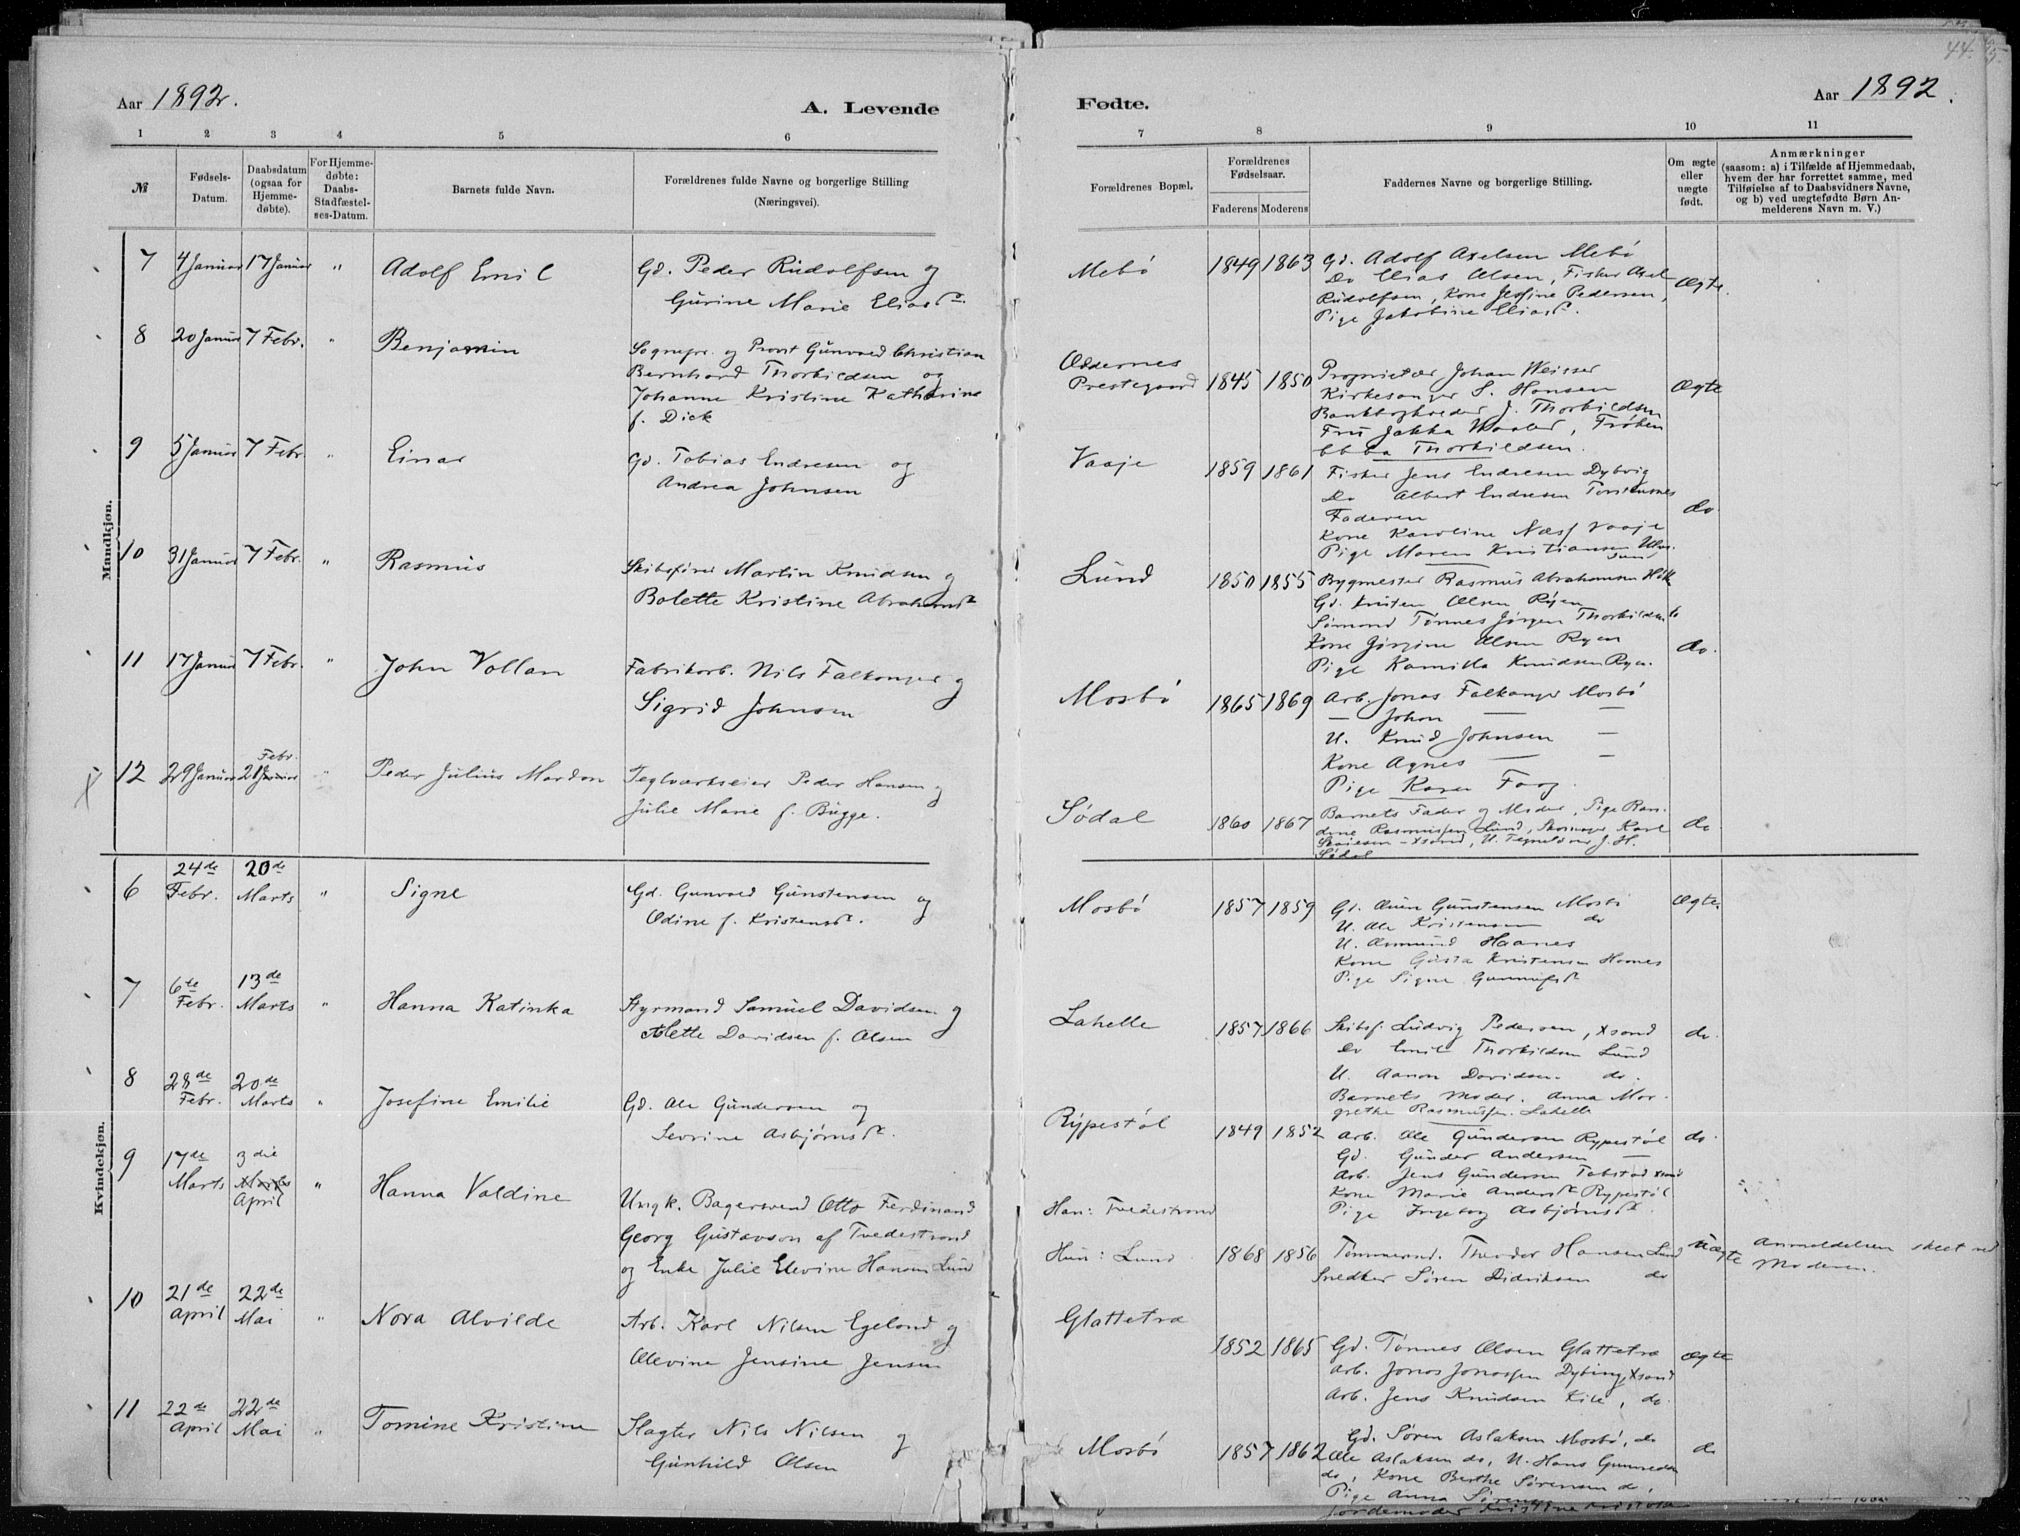 44.
Aar 1892.
A. Levende
Fødte.
Aar 1892.
1 2 3 4 5 6 7 8 9 10 11
№
Fødsels-
Datum.
Daabsdatum
(ogsaa for
Hjemme-
døbte).
For Hjemme-
døbte:
Daabs-
Stadfæstel-
ses-Datum.
Barnets fulde Navn.
Forældrenes fulde Navne og borgerlige Stilling
(Næringsvei).
Forældrenes Bopæl.
Forældrenes
Fødselsaar.
Faderens Moderens
Faddernes Navne og borgerlige Stilling.
Om ægte
eller
uægte
født.
Anmærkninger
(saasom: a) i Tilfælde af Hjemmedaab,
hvem der har forrettet samme, med
Tilføielse af to Daabsvidners Navne,
og b) ved uægtefødte Børn An-
melderens Navn m. V.)
Mandkjøn.
7 4 Januar 17 Januar " Adolf Emil
Gd. Peder Rudolfsen og
Gurine Marie Eliasd.
Mebø 1849 1863
Gd. Adolf Axelsen Mebø
Do Elias Olsen, Fisker Axel
Rudolfsen, Kone Josfine Pedersen,
Pige Jakobine Eliasd.
Ægte.
8 20 Januar 7 Febr. " Benjamin
Sognepr. og Provst Gunvald Christian
Bernhard Thorkildsen og
Johanne Kristine Katharine
f. Dick
Oddernes
Prestegaard 1845 1850
Proprietær Johan Weisser
Kirkesanger S. Hansen
Bankbogholder J. Thorkildsen
Fru Jakka Waaler, Frøken
Ebba Thorkildsen.
Ægte
9 5 Januar 7 Febr. " Einar
Gd. Tobias Endresen og
Andrea Johnsen
Vaaje 1859 1861
Fisker Jens Endresen Dybvig
Do Albert Endresen Torstensnes
Faderen
Kone Karoline Næsf Vaaje
Pige Maren Kristiansen
do.
10 31 Januar 7 Febr. " Rasmus
Skibsfører Martin Knudsen og
Bolette Kristine Abrahamsd.
Lund 1850 1855
Bygmester Rasmus Abrahamsen
Gd. Kristen Olsen Ryen
Sømand Tønnes Jørgen Thorkildsen do
Kone Jørgine Olsen Ryen
Pige Kamilla Knudsen Ryen.
do.
11 17 Januar 7 Febr. " John Vollan
Fabrikarb. Nils Falkanger og
Sigrid Johnsen
Mosbø 1865 1869
Arb. Jonas Falkanger Mosbø
— Johan — —
U. Knud Johnsen —
Kone Agnes — —
Pige Karen Faag.
12 29 Januar 21 Januar Febr. " Peder Julius Mardon
Teglværkseier Peder Hansen og
Julie Marie f. Bugge.
Sødal 1860 1867
Barnets Fader og Moder, Pige Ran-
dine Rasmussen Lund, Karl
J. H.
Sødal
do
Kvindekjøn.
6 24de Febr. 20de Marts " Signe
Gd. Gunvald Gunstensen og
Odine f. Kristensd.
Mosbø 1857 1859
Gd. Gunstensen Mosbø
U. Ole Kristensen do
U. Asmund Haanes
Kone Gusta Kristensen Homes
Pige Signe
Ægte.
7 6te Febr. 13de Marts " Hanna Katinka
Styrmand Samuel Davidsen og
Alette Davidsen f. Olsen
Lahelle 1857 1866
Skibsf. Ludvig Pedersen, Xsand
Do Emil Thorkildsen Lund
U. Aanon Davidsen do.
Barnets Moder. Anna Mar-
grethe Rasmussen. Lahelle
do.
8 28de Febr. 20de Marts " Josefine Emilie
Gd. Ole Gundersen og
Sevrine Asbjørnsd.
Rypestøl 1849 1852
Arb. Ole Gundersen Rypestøl
Gd. Gunder Andersen —
Arb. Jens Gundersen Xsand
Kone Marie Andersd Rypestøl
Pige Ingeborg Asbjørnsd.
do.
9 17de Marts 3die Marts April " Hanna Valdine
Ungk. Bagersvend Otto Ferdinand
Georg Gustavson af Tvedestrand
og Enke Julie Elevine Hansen Lund
Han: Tvedestrand
Hun: Lund 1868 1856
Tømmermd. Theodor Hansen Lund
Snedker Søren Didriksen do
Uægte
Anmeldelsen skeet ved
Moderen.
10 21de April 22de Mai " Nora Alvilde
Arb. Karl Nilsen Egeland og
Olevine Jensine Jensen
Glattetræ
1852 1865
Gd. Tønnes Olsen Glattetræ
Arb. Jonas Jonassen Dybing, Xsand
Arb. Jens Knudsen Kile, do.
Ægte
11 22de April 22de Mai " Tomine Kristine
Slagter Nils Nilsen og
Gunhild Olsen
Mosbø 1857 1862
Gd. Søren Aslaksen Mosbø, do
Ole Aslaksen do, U. Hans Gunvaldsen
do, Kone Berthe Sørensen do,
Pige Anna Sørensen
Jordemoder Kristine
do